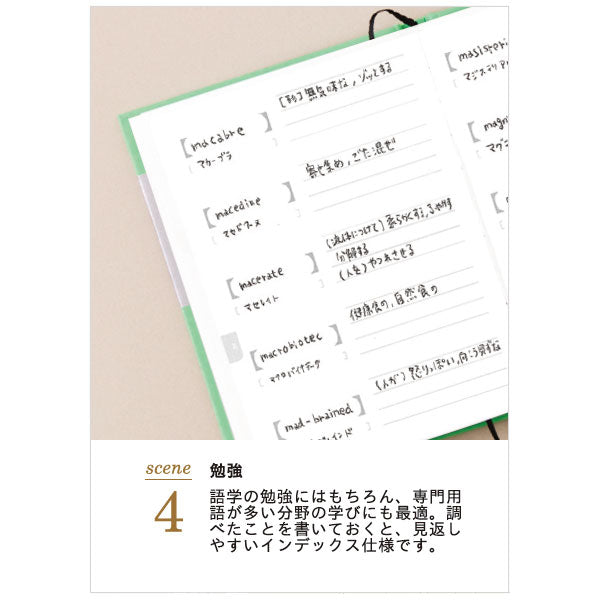 [形] 無気味な, ゾッとする
macabre
マカーブラ
寄せ集め, ごた混ぜ
macedine
マセドアーヌ
(液体につけて) 柔らかくする, ふやかす
分解する
(人を) やつれさせる
macerate
マセレイト
健康食の, 自然食の
macrobiotec
マクロバイオテーク
(人が) 怒りっぽい, 向こう見ずな
mad-brained
マジステリア
scene
4
勉強
語学の勉強にはもちろん、専門用
語が多い分野の学びにも最適。調
べたことを書いておくと、見返し
やすいインデックス仕様です。